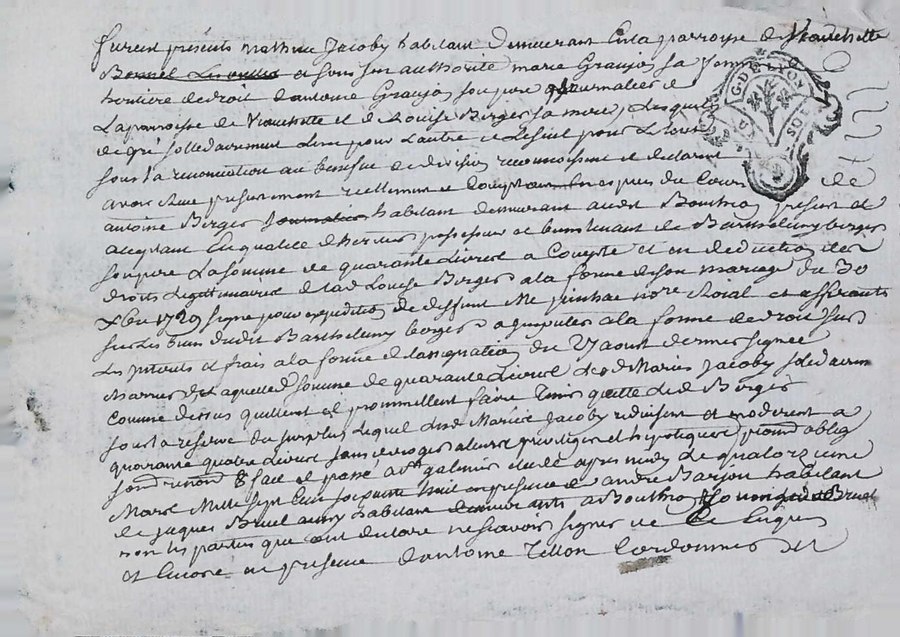 furent présents mathieu Jacoby habitant demeurant en la parroisse de Viouchette
et sous son authorité marie Granjon sa femme
heritiere de droit d'antoine Granjon son pere journalier de
la parroisse de Viouchette et de Louise Berger sa mere, Lesquels
de gré sollidairement L'un pour L'autre et Le seul pour Le tout
sous la renonciation au benefice de division reconnoissent et declarent
avoir Receu presentement reellement et comptant en espèces du Cours de
antoine Berger journalier habitant demeurant audit Bouthéo present et
acceptant En qualité d'heritier possesseur et bientenant de Barthelemy berger
son pere La somme de quarante Livres a Compte et en deduction des
droits Legitimaires de lad Louise Berger a la forme de son mariage du 30
xbre 1729 signé pour expedition de deffunt Me notre Roial et afferants
sur Les biens dudit Barthelemy berger a imputer a la forme de droit sur
Les interets et frais a la forme de l'assignation du 27 aout dernier signée
de Laquelle somme de quarante Livres Lesd Mariés Jacoby solidairem
comme dessus quittent et promettent faire tenir quitte led Berger
sous la reserve du surplus Lequel Lesd Mariés Jacoby reduisent et moderent a
quarante quatre Livres sans deroger a leurs privileges et hipoteques oblig
renond & fait et passé a St galmier etude apres midy Le quatorzieme
Mars Mille sept Cent soixante huit en presence de andré Barjon habitant
et jaques Bruel aussy habitant demeurants a Bouthéo
non Les parties qui ont declaré ne scavoir signer de Ce Enquis
et Encore en presence d'antoine Tillon Cordonnier
G. DE LYON